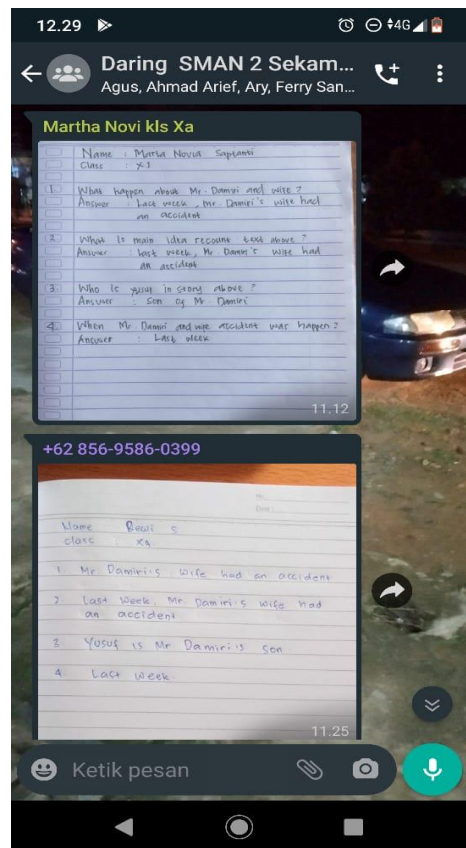 12.29
4G
Daring SMAN 2 Sekam...
Agus, Ahmad Arief, Ary, Ferry San...
Martha Novi kls Xa
Name : Marta Novia Saptanti
Class : X1
1. What happen about Mr. Damiri and wife ?
Answer : Last week, Mr. Damiri's wife had
an accident
2. What is main idea recount text above ?
Answer : last week, Mr Damiri's wife had
an accident
3. Who is yusuf in story above ?
Answer : Son of Mr Damiri
4. When Mr. Damiri and wife accident was happen ?
Answer : Last week
11.12
+62 856-9586-0399
Name Dewi S
class : X1
1. Mr Damiri's wife had an accident
2. Last week, Mr Damiri's wife had
an accident
3 Yusuf is Mr Damiri's son
4. Last week.
11.25
Ketik pesan